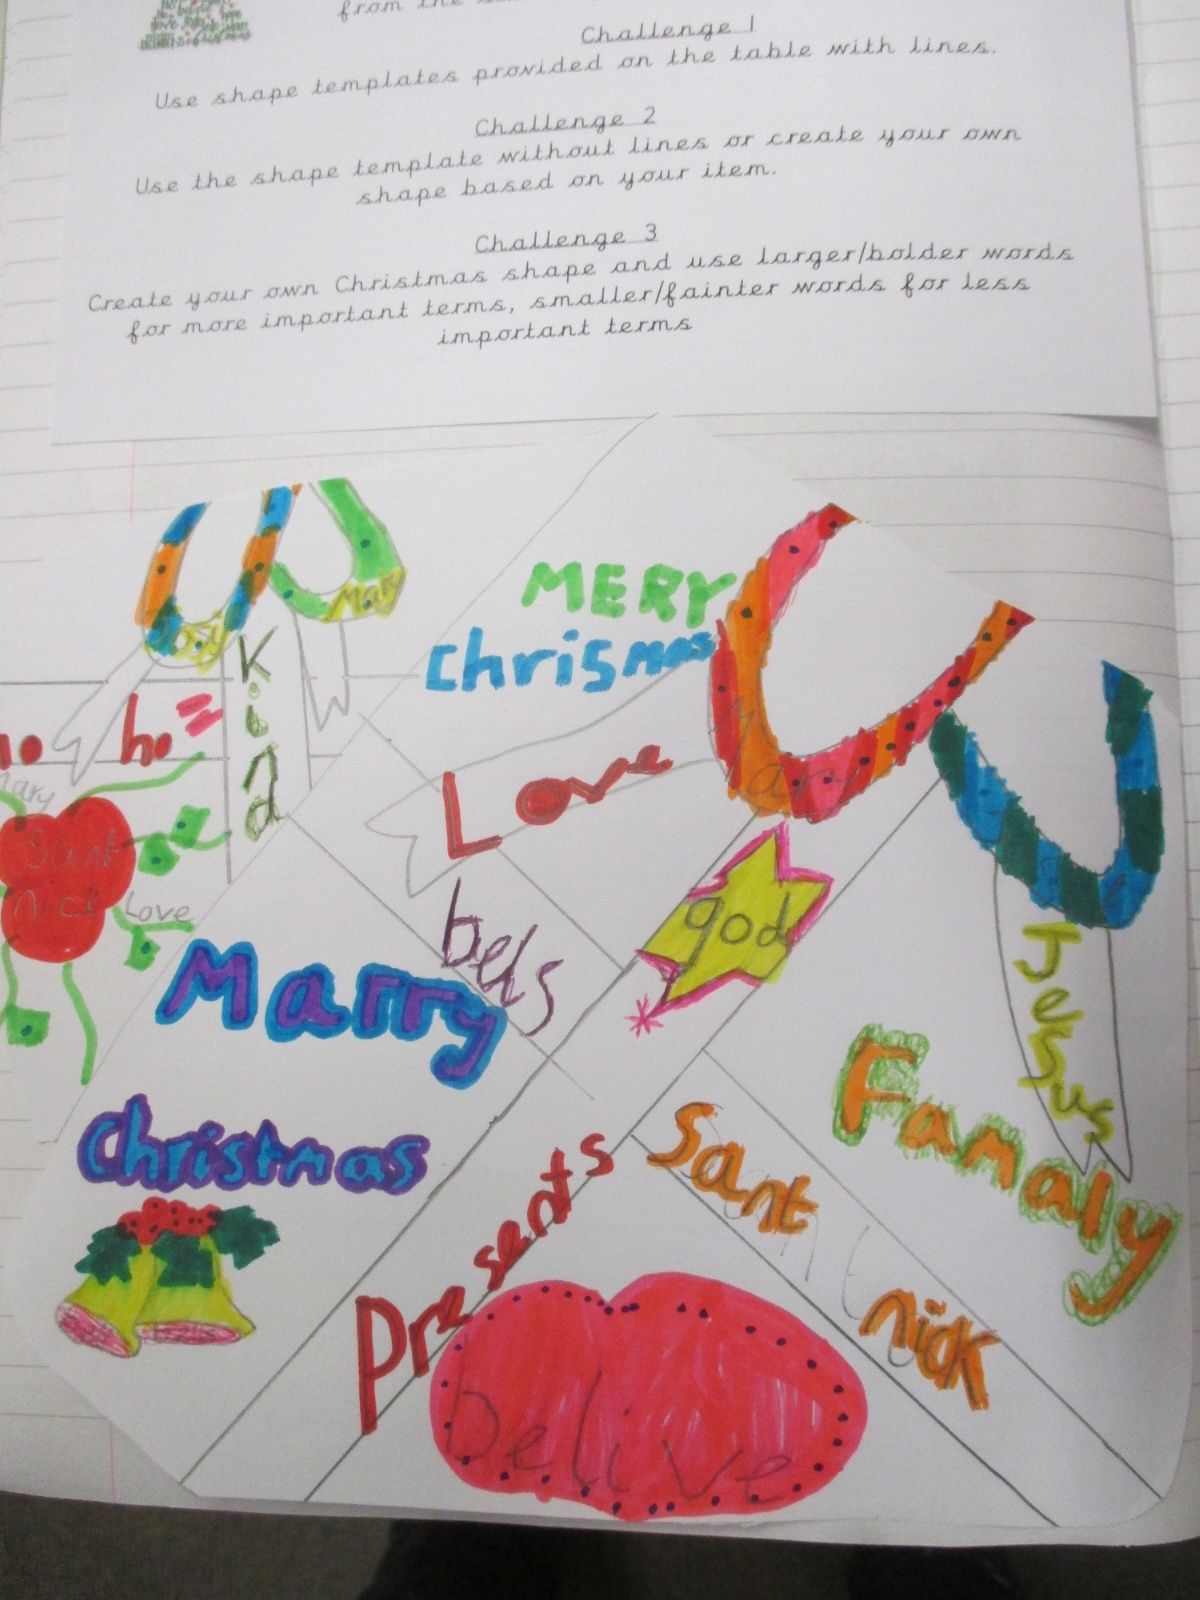 from the
Challenge 1
Use shape templates provided on the table with lines.
Challenge 2
Use the shape template without lines or create your own
shape based on your item.
Challenge 3
Create your own Christmas shape and use larger/bolder words
for more important terms, smaller/fainter words for less
important terms
Joy
Mary
Kind
ho
ho
Mary
Sant
nick
Love
MERY
Chrismas
Love
Mary
bels
god
Jesus
Marry
Christmas
Famaly
Presents
Sant
nick
belive